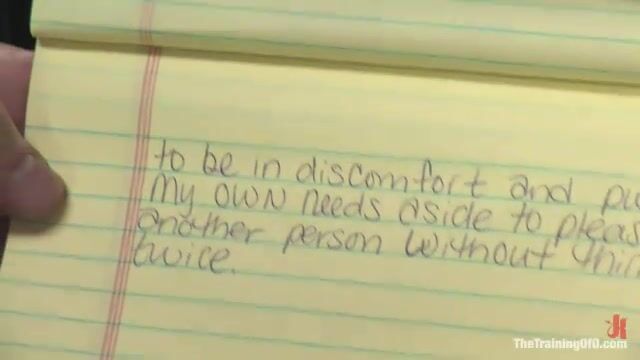 to be in discomfort and pu
my own needs aside to pleas
another person without thin
twice.
TheTrainingOfO.com